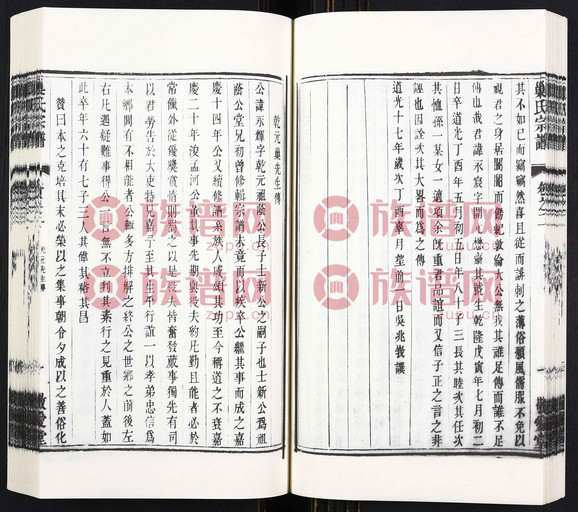 其不如已而竊竊然喜且從而謗刺之薄俗頹風儒服不免以
視君之身居闤闠而傍紀敦倫大公無我其誰足傳而誰不足
傳也哉君諱永宸字開一號懋豪其號生乾隆戊寅年七月初二
日卒道光丁酉年五月初五日年八十子三長其睦次其任次
其恤孫一某女一適項余旣重君品誼而又信子正之言之非
誣也因詮次其大畧而爲之傳
道光十七年歲次丁酉皋月堂前一日吳兆嵚譔
乾元巢先生傳
公諱永輝字乾元祖蔭公長子士新公之嗣子也士新公爲祖
蔭公堂兄初曾修輯宗譜未竟而以疾卒公繼其事而成之嘉
慶十四年公又續修譜系族人咸頌其功至今稱道之不衰嘉
慶二十年浚孟河公董其事先期與役夫約凡勤且能者必於
常餼外從優獎賞惰則罰之以是役夫皆奮發蕆事獨先有司
以君勞告於大吏特允嘉予至其生平行誼一以孝弟忠信爲
本鄉閭有不相能者公輒多方排解之終公之世鄉之前後左
右凡遇疑難事得公一言無不立判其素行之見重於人蓋如
此卒年六十有七子三人其偉其裕其昌
贊曰本之克培其末必榮以之集事朝令夕成以之善俗化
巢氏宗譜
敬愛堂
巢氏宗譜
乾元先生傳
敬愛堂
族谱网
zupu.cn